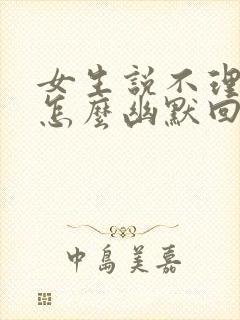 女生説不理
怎麼幽默回
中島美嘉